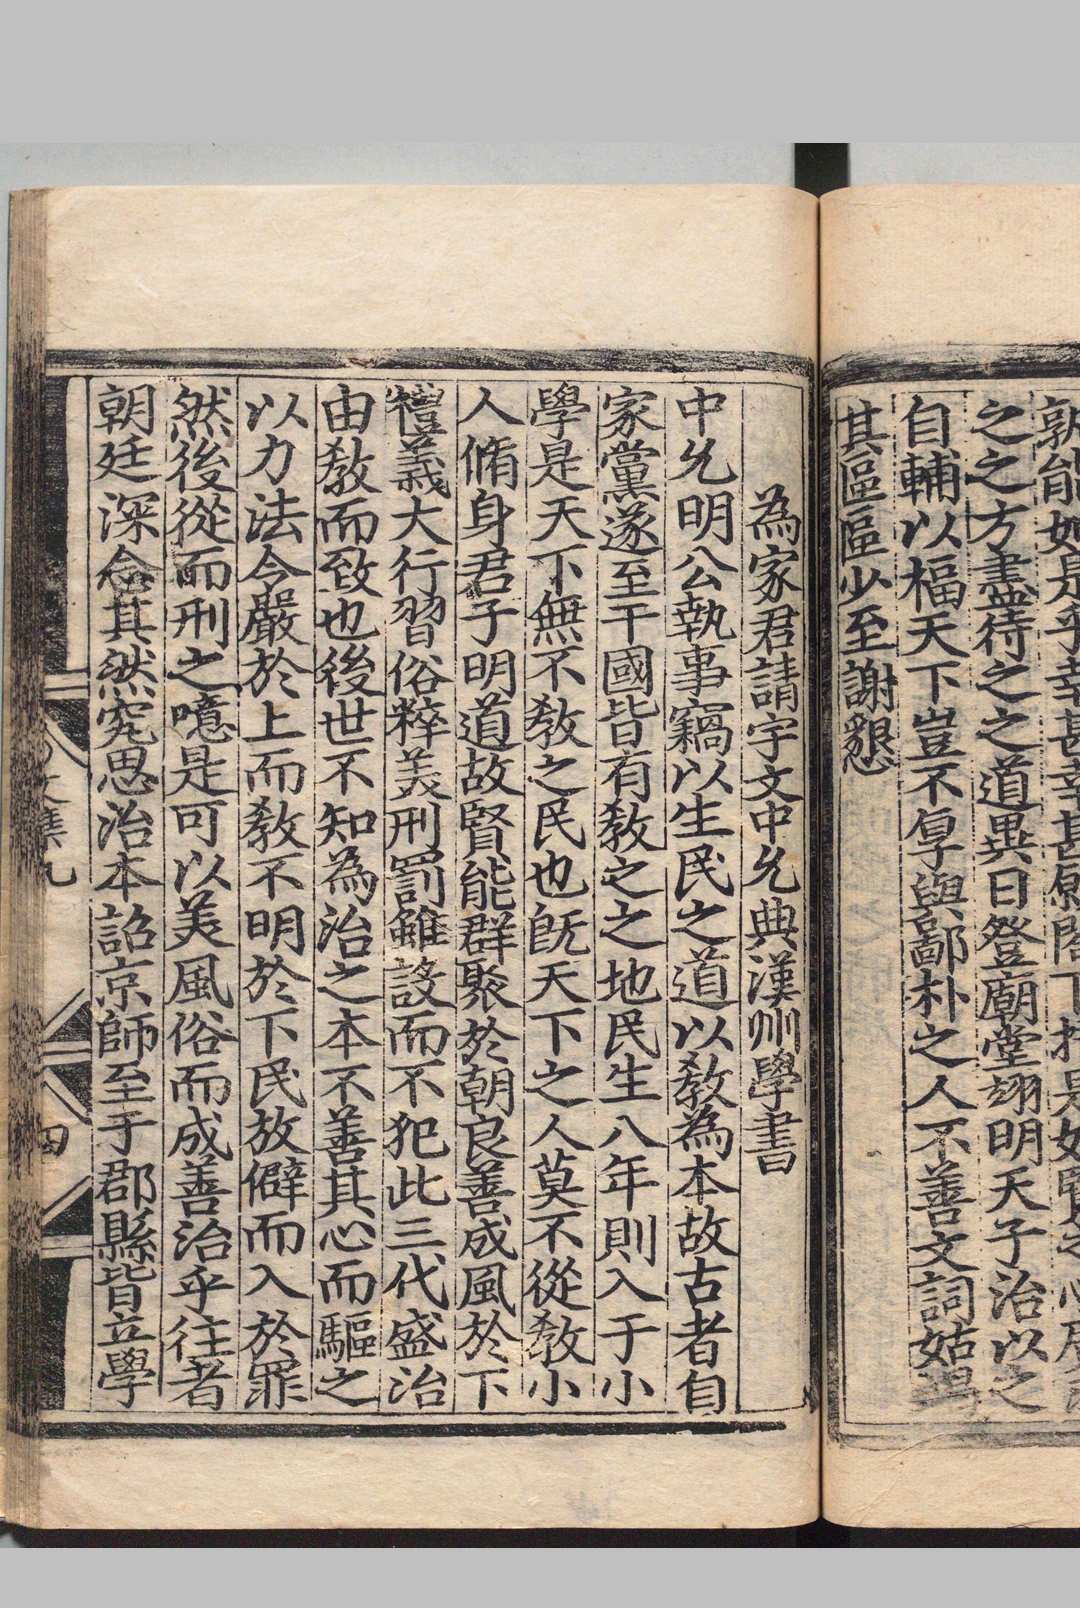 孰能如是乎幸甚幸甚原閤下
之之方盡待之之道異日登廟堂翊明天子治以之
自輔以福天下豈不厚與鄙朴之人不善文詞姑
其區區少至謝懇
為家君請宇文中允典漢州學書
中允明公執事竊以生民之道以敎為本故古者自
家黨遂至于國皆有敎之之地民生八年則入于小
學是天下無不敎之民也旣天下之人莫不從敎小
人脩身君子明道故賢能群聚於朝良善成風於下
禮義大行習俗粹美刑罰雖設而不犯此三代盛治
由敎而致也後世不知為治之本不善其心而驅之
以力法令嚴於上而敎不明於下民放僻而入於罪
然後從而刑之噫是可以美風俗而成善治乎往者
朝廷深念其然究思治本詔京師至于郡縣皆立學
文集九
四